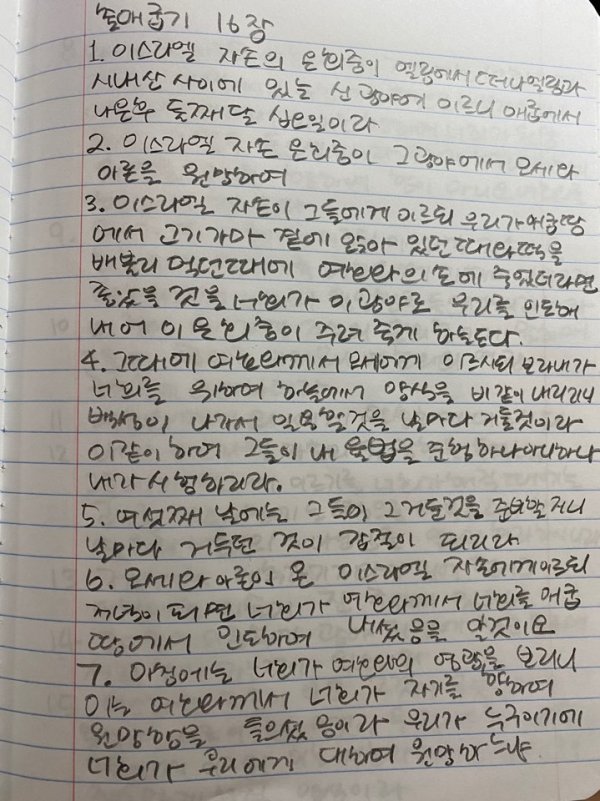 출애굽기 16장
1. 이스라엘 자손의 온 회중이 엘림에서 떠나 엘림과
시내산 사이에 있는 신 광야에 이르니 애굽에서
나온 후 둘째 달 십오일이라
2. 이스라엘 자손 온 회중이 그 광야에서 모세와
아론을 원망하여
3. 이스라엘 자손이 그들에게 이르되 우리가 애굽 땅
에서 고기 가마 곁에 앉아 있던 때와 떡을
배불리 먹던 때에 여호와의 손에 죽었더라면
좋았을 것을 너희가 이 광야로 우리를 인도해
내어 이 온 회중이 주려 죽게 하는도다.
4. 그때에 여호와께서 모세에게 이르시되 보라 내가
너희를 위하여 하늘에서 양식을 비 같이 내리리니
백성이 나가서 일용할 것을 날마다 거둘 것이라
이같이 하여 그들이 내 율법을 준행하나 아니하나
내가 시험하리라.
5. 여섯째 날에는 그들이 그 거둔 것을 준비할지니
날마다 거두던 것의 갑절이 되리라
6. 모세와 아론이 온 이스라엘 자손에게 이르되
저녁이 되면 너희가 여호와께서 너희를 애굽
땅에서 인도하여 내셨음을 알 것이요
7. 아침에는 너희가 여호와의 영광을 보리니
이는 여호와께서 너희가 자기를 향하여
원망함을 들으셨음이라 우리가 누구이기에
너희가 우리에게 대하여 원망하느냐